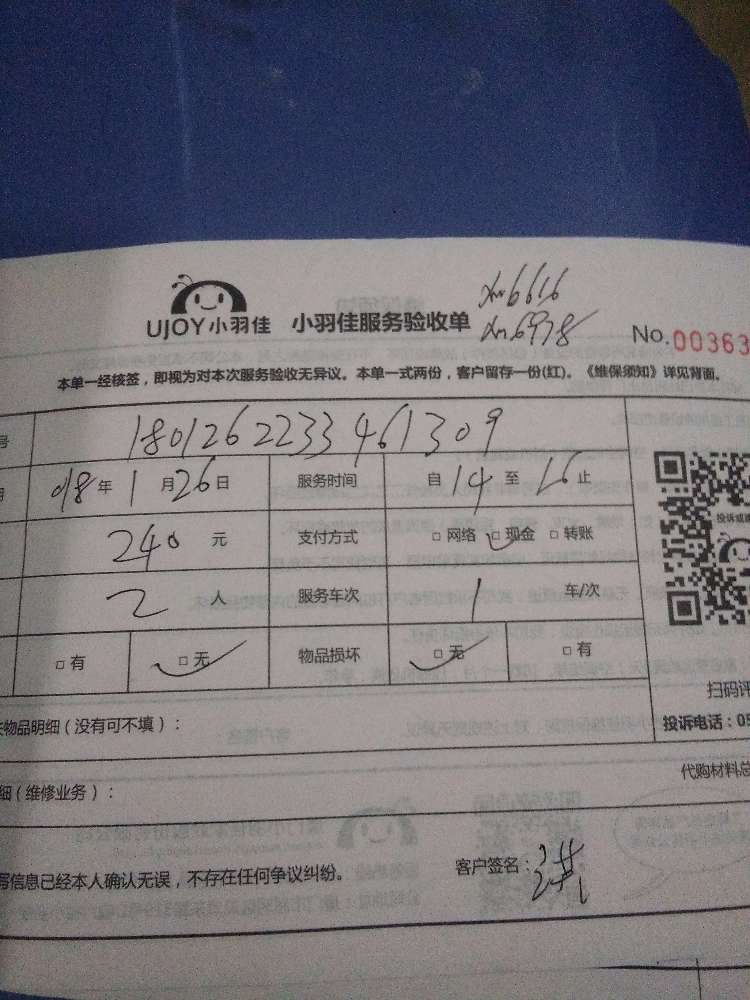 xm6616
UJOY小羽佳 小羽佳服务验收单 xm6978 No.00363
本单一经核签，即视为对本次服务验收无异议。本单一式两份，客户留存一份(红)。《维保须知》详见背面。
号 1801262233461309
年 1 月 26 日 服务时间 自 14 至 16 止
240 元 支付方式 □ 网络 □ 现金 □ 转账
投诉或
2 人 服务车次 1 车/次
□ 有 □ 无 物品损坏 □ 无 □ 有
扫码评
物品明细（没有可不填）： 投诉电话：05
细（维修业务）： 代购材料总
写信息已经本人确认无误，不存在任何争议纠纷。 客户签名：